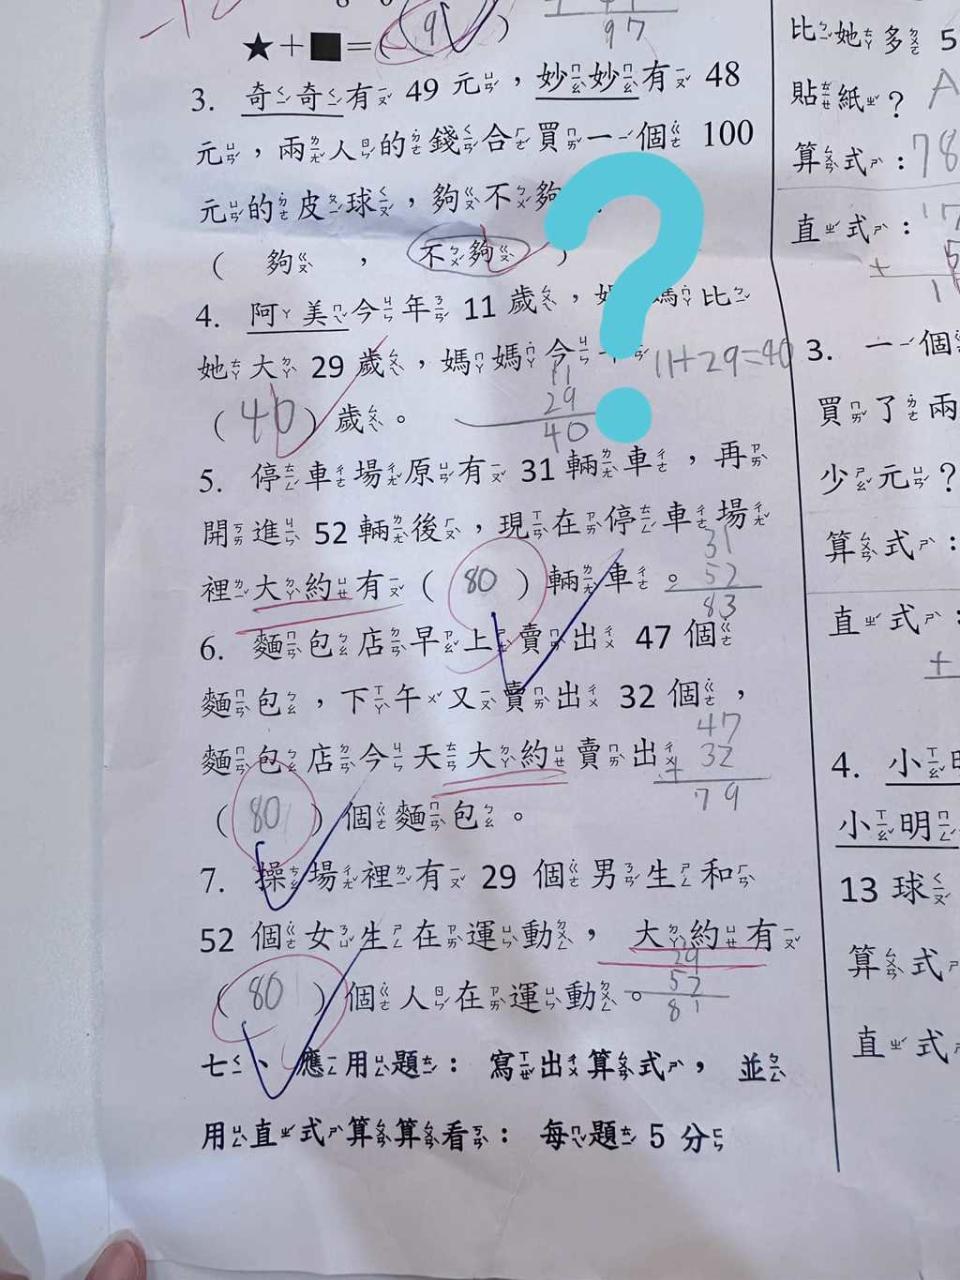 97
★＋■＝(9)
3. 奇奇有 49 元，妙妙有 48
元，兩人的錢合買一個 100
元的皮球，夠不夠
( 夠 ， 不夠 )
4. 阿美今年 11 歲，媽媽比
她大 29 歲，媽媽今年
11+29=40
11
29
40
(40) 歲。
5. 停車場原有 31 輛車，再
開進 52 輛後，現在停車場
裡大約有 ( 80 ) 輛車。
31
52
83
6. 麵包店早上賣出 47 個
麵包，下午又賣出 32 個，
麵包店今天大約賣出
47
+ 32
79
( 80 ) 個麵包。
7. 操場裡有 29 個男生和
52 個女生在運動，大約有
29
52
81
( 80 ) 個人在運動。
七、應用題：寫出算式，並
用直式算算看：每題 5 分
比她多 5
貼紙？ A
算式：78
直式：
+ 5
3. 一個
買了兩
少元？
算式：
直式：
+
4. 小明
小明
13 球
算式
直式